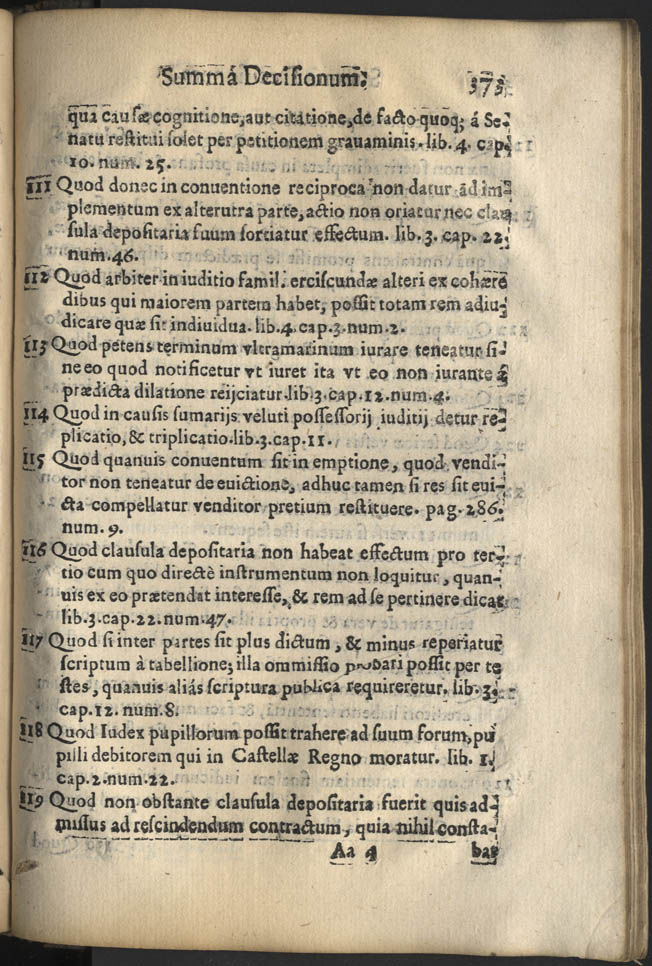 Summá Decisionum. 373
qua causæ cognitione, aut citatione, de facto quoq; á Se-
natu restitui solet per petitionem grauaminis. lib. 4. cap.
10. num. 25.
111 Quod donec in conuentione reciproca non datur ad im-
plementum ex alterutra parte, actio non oriatur nec clau
sula depositaria suum sortiatur effectum. lib. 3. cap. 22.
num. 46.
112 Quod arbiter in iuditio famil. erciscundæ alteri ex cohære
dibus qui maiorem partem habet, possit totam rem adiu-
dicare quæ sit indiuidua. lib. 4. cap. 3. num. 2.
113 Quod petens terminum vltramarinum iurare teneatur si-
ne eo quod notificetur vt iuret ita vt eo non iurante á
prædicta dilatione reijciatur. lib. 3. cap. 12. num. 4.
114 Quod in causis sumarijs veluti possessorij iuditij detur re-
plicatio, & triplicatio. lib. 3. cap. 11.
115 Quod quanuis conuentum sit in emptione, quod vendi-
tor non teneatur de euictione, adhuc tamen si res sit eui-
cta compellatur venditor pretium restituere. pag. 286.
num. 9.
116 Quod clausula depositaria non habeat effectum pro ter-
tio cum quo directè instrumentum non loquitur, quan-
uis ex eo prætendat interesse, & rem ad se pertinere dicat
lib. 3. cap. 22. num. 47.
117 Quod si inter partes sit plus dictum, & minus reperiatur
scriptum à tabellione; illa ommissio probari possit per te
stes, quanuis aliás scriptura publica requireretur. lib. 3.
cap. 12. num. 8.
118 Quod Iudex pupillorum possit trahere ad suum forum, pu
pilli debitorem qui in Castellæ Regno moratur. lib. 1.
cap. 2. num. 22.
119 Quod non obstante clausula depositaria fuerit quis ad-
missus ad rescindendum contractum, quia nihil consta-
Aa 4 bat